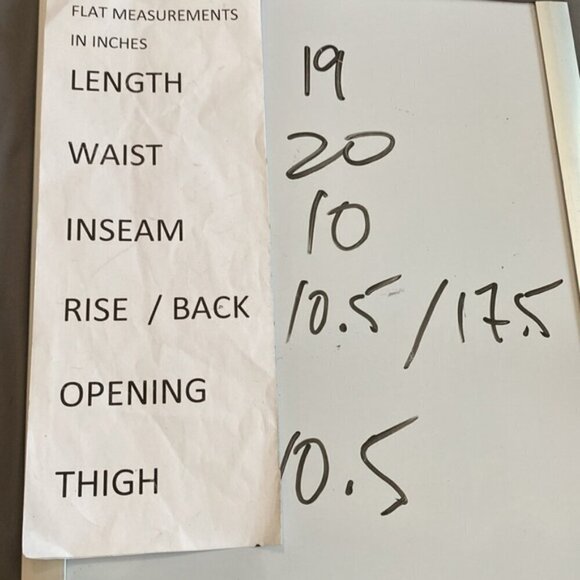 FLAT MEASUREMENTS
IN INCHES
LENGTH 19
WAIST 20
INSEAM 10
RISE / BACK 10.5 / 17.5
OPENING
THIGH 10.5